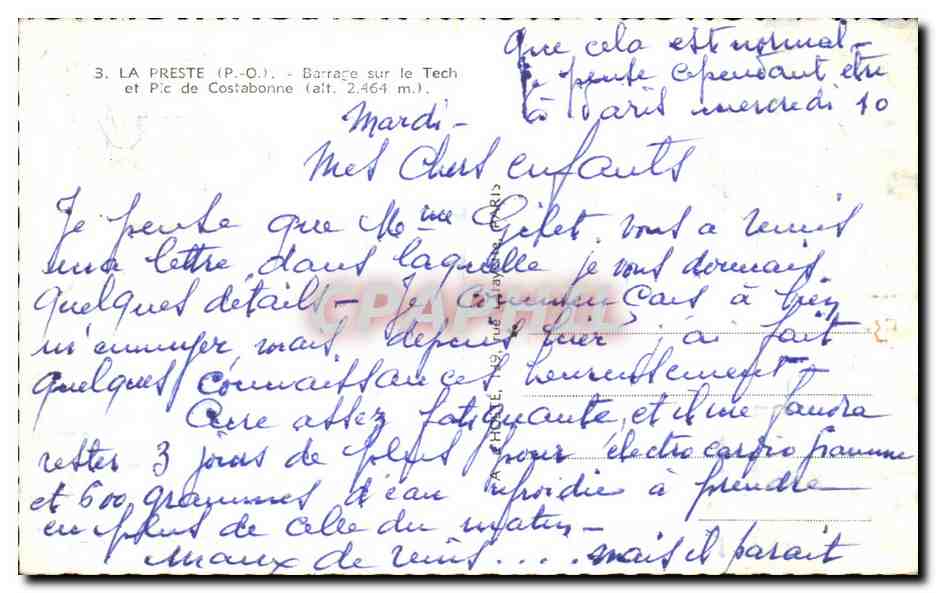 3. LA PRESTE (P.-O.). - Barrage sur le Tech
et Pic de Costabonne (alt. 2.464 m.).
Mardi -
Mes Chers enfants
Je pense que Mme Gifet, vous a remis
une lettre, dans laquelle je vous donnais
quelques détails - Je commençais à bien
m'ennuyer, mais depuis hier j'ai fait
quelques connaissances heureusement -
Cure assez fatiguante, et il me faudra
rester 3 jours de plus pour électrocardiogramme
et 600 grammes d'eau refroidie à prendre
en plus de celle du matin -
Maux de reins .... mais il parait
que cela est normal -
Je pense cependant être
à Paris mercredi 10
A. L'HOSTE, 49, rue Lafayette, PARIS
CPARAMA